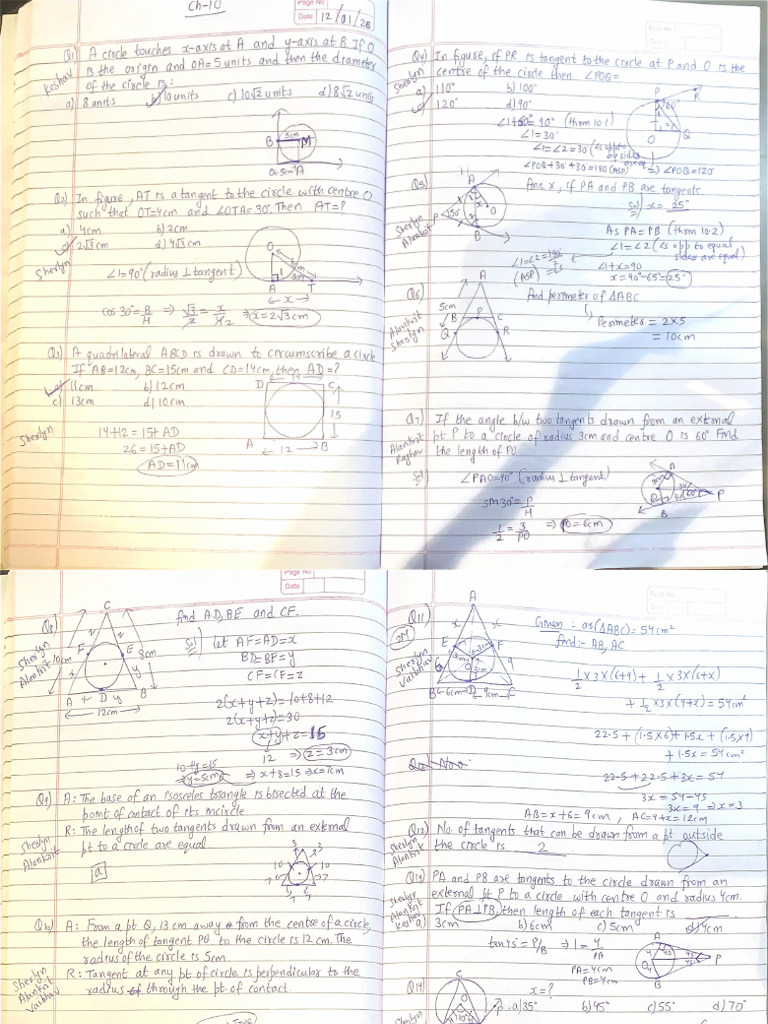 Ch-10
Page No
Date 12/01/26
Q1) A circle touches x-axis at A and y-axis at B. If O
is the origin and OA=5 units and then the diameter
of the circle is:
Keshav
a) 8 units b) 10 units c) 10√2 units d) 8√2 units
B 5cm M
O 5cm A
Q2) In figure, AT is a tangent to the circle with centre O
such that OT=4cm and ∠OTA=30°. Then AT=?
a) 4cm b) 2cm
c) 2√3cm d) 4√3cm
Sherlyn
∠1=90° (radius ⊥ tangent)
O
A T
← x →
cos 30°= B/H ⇒ √3/2 = x/4 ⇒ x=2√3 cm
Q3) A quadrilateral ABCD is drawn to circumscribe a circle
If AB=12cm, BC=15cm and CD=14cm, then AD=?
a) 11cm b) 12cm
c) 13cm d) 10cm
D 14 C
15
A ← 12 → B
Sherlyn
14+12 = 15+AD
26 = 15+AD
AD=11cm
Q4) In figure, if PR is tangent to the circle at P and O is the
centre of the circle then ∠POQ=
Sherlyn
a) 110° b) 100°
c) 120° d) 90°
P R
60°
O Q
∠1+60°=90° (thm 10.1)
∠1=30°
∠1=∠2=30° (∠s opp to
∠POQ+30+30=180 (ASP) ⇒ ∠POQ=120°
Q5) Find x, if PA and PB are tangents.
Sherlyn
Alankrit
A
P 50° x O
B
Sol) x = 25°
As PA=PB (thm 10.2)
∠1=∠2 (∠s opp to equal
sides are equal)
(ASP)
∠1+x=90
x=90°-65°=25°
Q6) Find perimeter of △ABC
Alankrit
Sherlyn
A
5cm
B P C
Q R
Perimeter = 2×5
= 10cm
Q7) If the angle b/w two tangents drawn from an external
pt P to a circle of radius 3cm and centre O is 60° Find
the length of PO
Alankrit
Raghav
Sol) ∠PAO=90° (radius ⊥ tangent)
A
3cm
O P
B
sin 30°= P/H
1/2 = 3/PO ⇒ PO=6cm
Page No
Date
Q8) find AD, BE and CF.
Sherlyn
Alankrit
C
10cm 8cm
F E
A x D y B
12cm
Sol) let AF=AD=x
BD=BF=y
CF=CE=z
2(x+y+z)=10+8+12
2(x+y+z)=30
x+y+z=15
12 ⇒ z=3cm
10+y=15
y=5cm ⇒ x+8=15 ⇒ x=7cm
Q9) A: The base of an isosceles triangle is bisected at the
point of contact of its incircle
R: The length of two tangents drawn from an external
pt to a circle are equal
Sherlyn
Alankrit
a
3 3
10 10
7 7
7 7
Q10) A: From a pt Q, 13 cm away from the centre of a circle,
the length of tangent PQ to the circle is 12 cm. The
radius of the circle is 5cm.
R: Tangent at any pt of circle is perpendicular to the
radius through the pt of contact.
Sherlyn
Alankrit
Vaibhav
Q11) Given: ar(△ABC)=54cm²
find:- AB, AC
2M
Sherlyn
Vaibhav
A
x x
E F
O
6 9
B ←6cm→ D ←9cm→ C
1/2 ×3×(6+9) + 1/2 ×3×(6+x)
+ 1/2 ×3×(9+x) = 54cm²
22.5 + (1.5×6)+1.5x + (1.5×9)
+ 1.5x = 54cm²
22.5+22.5+3x=54
3x = 54-45
3x = 9 ⇒ x=3
AB=x+6=9cm, AC=9+x=12cm
Q12) No. of tangents that can be drawn from a pt outside
the circle is 2
Sherlyn
Alankrit
Q13) PA and PB are tangents to the circle drawn from an
external pt P to a circle with centre O and radius 4cm.
If PA⊥PB, then length of each tangent is
Sherlyn
Alankrit
Keshav
a) 3cm b) 6cm c) 5cm d) 4cm
tan 45°= P/B ⇒ 1= 4/PA
PA=4cm
PB=4cm
A
O P
B
Q14) x=?
C
O
110°
P
a) 35° b) 45° c) 55° d) 70°
Sherlyn